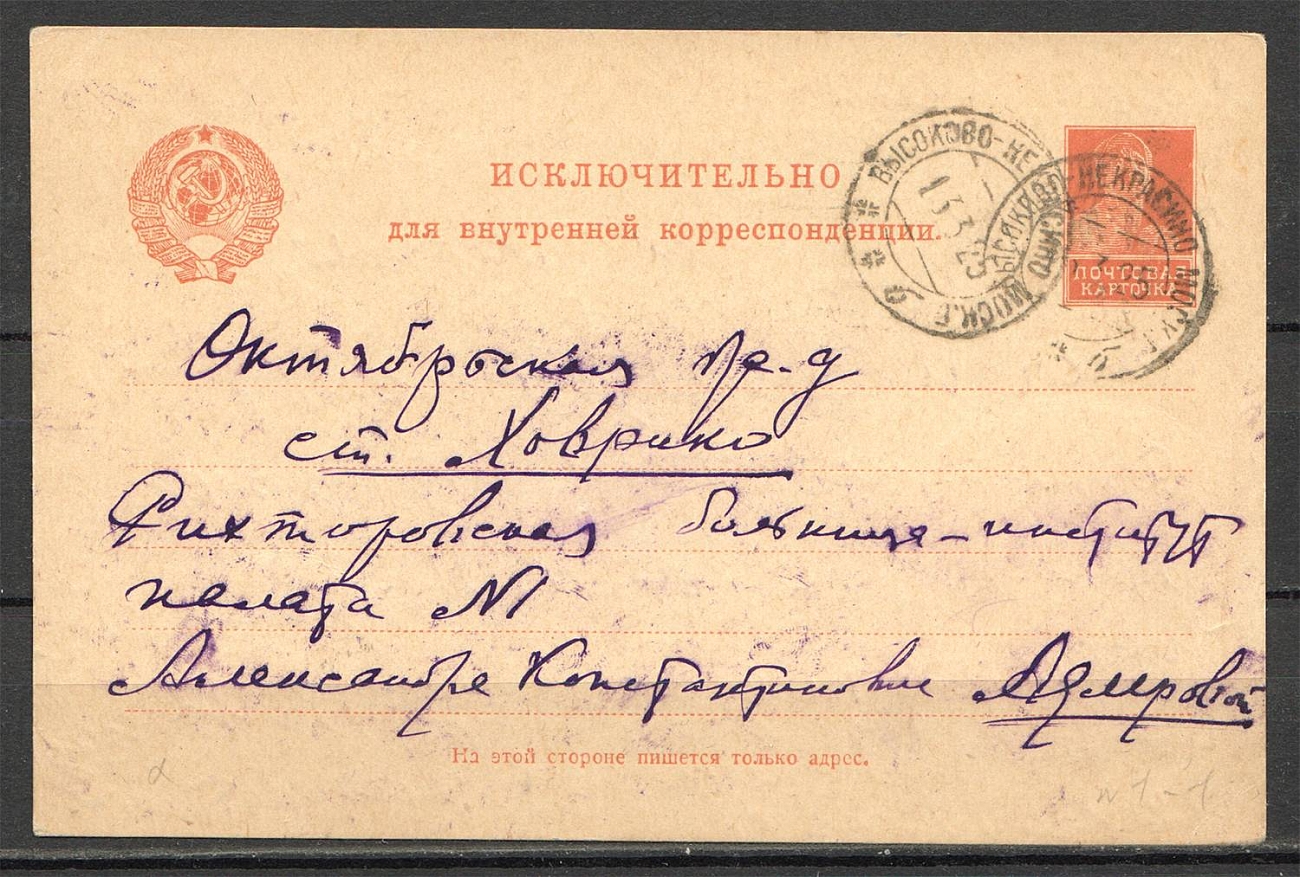 ИСКЛЮЧИТЕЛЬНО
для внутренней корреспонденции.
ВЫСОКОВО-НЕКРАСИНО МОСК.Г.
13 3 25
б
ВЫСОКОВО-НЕКРАСИНО МОСК.Г.
б
ПОЧТОВАЯ
КАРТОЧКА
Октябрьская ж.д
ст. Ховрино
Рихторовская больница-институт
палата №1
Александре Константиновне
На этой стороне пишется только адрес.